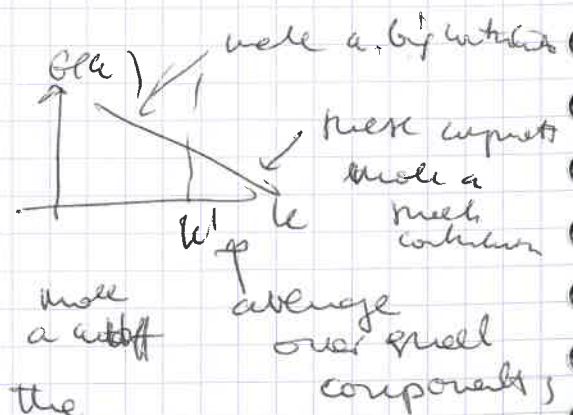 G(k)
make a big contribution
these components
make a
small
contribution
k'
k
make
a cutoff
average
over small
components,
the